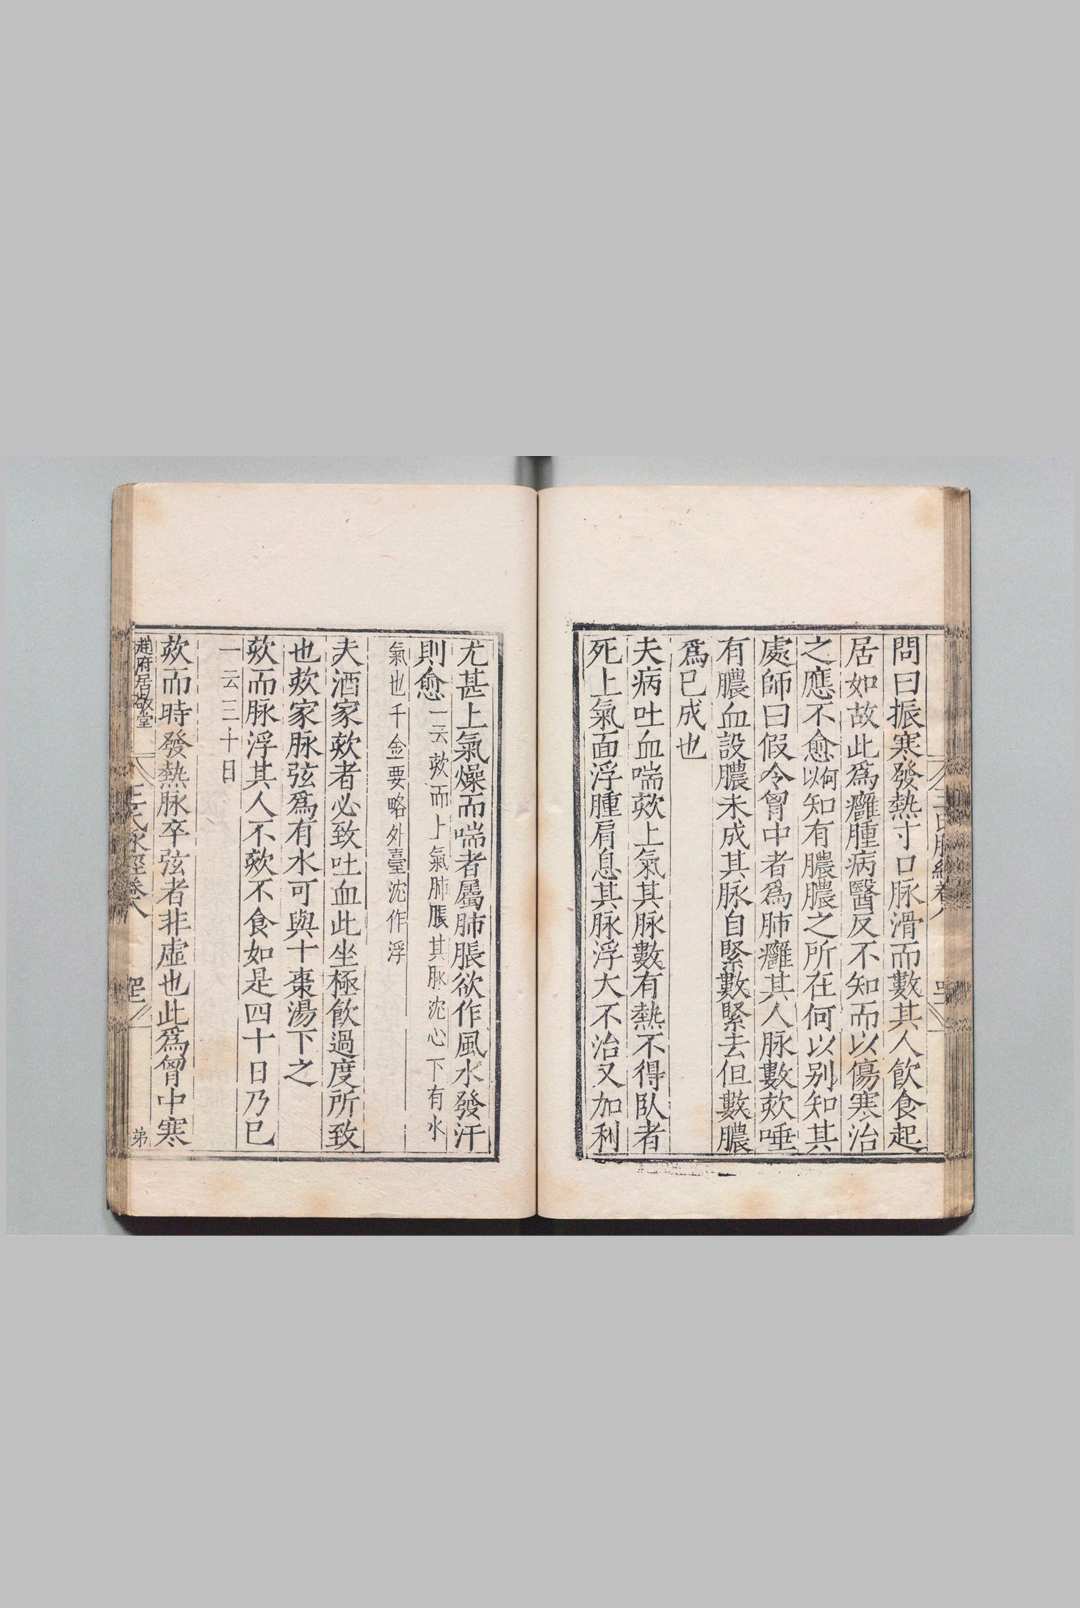 問曰振寒發熱寸口脉滑而數其人飲食起
居如故此爲癰腫病醫反不知而以傷寒治
之應不愈何以知有膿膿之所在何以別知其
處師曰假令胷中者爲肺癰其人脉數欬唾
有膿血設膿未成其脉自緊數緊去但數膿
爲已成也
夫病吐血喘欬上氣其脉數有熱不得臥者
死上氣面浮腫肩息其脉浮大不治又加利
尤甚上氣燥而喘者屬肺脹欲作風水發汗
則愈一云欬而上氣肺脹其脉沈心下有水
氣也千金要略外臺沈作浮
夫酒家欬者必致吐血此坐極飲過度所致
也欬家脉弦爲有水可與十棗湯下之
欬而脉浮其人不欬不食如是四十日乃已
一云三十日
欬而時發熱脉卒弦者非虛也此爲胷中寒
趙府居敬堂
王氏脉經卷八
弟